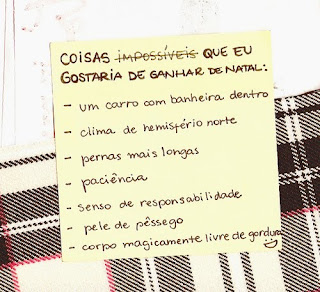 COISAS IMPOSSÍVEIS QUE EU
GOSTARIA DE GANHAR DE NATAL:
- um carro com banheira dentro
- clima de hemisfério norte
- pernas mais longas
- paciência
- senso de responsabilidade
- pele de pêssego
- corpo magicamente livre de gordura